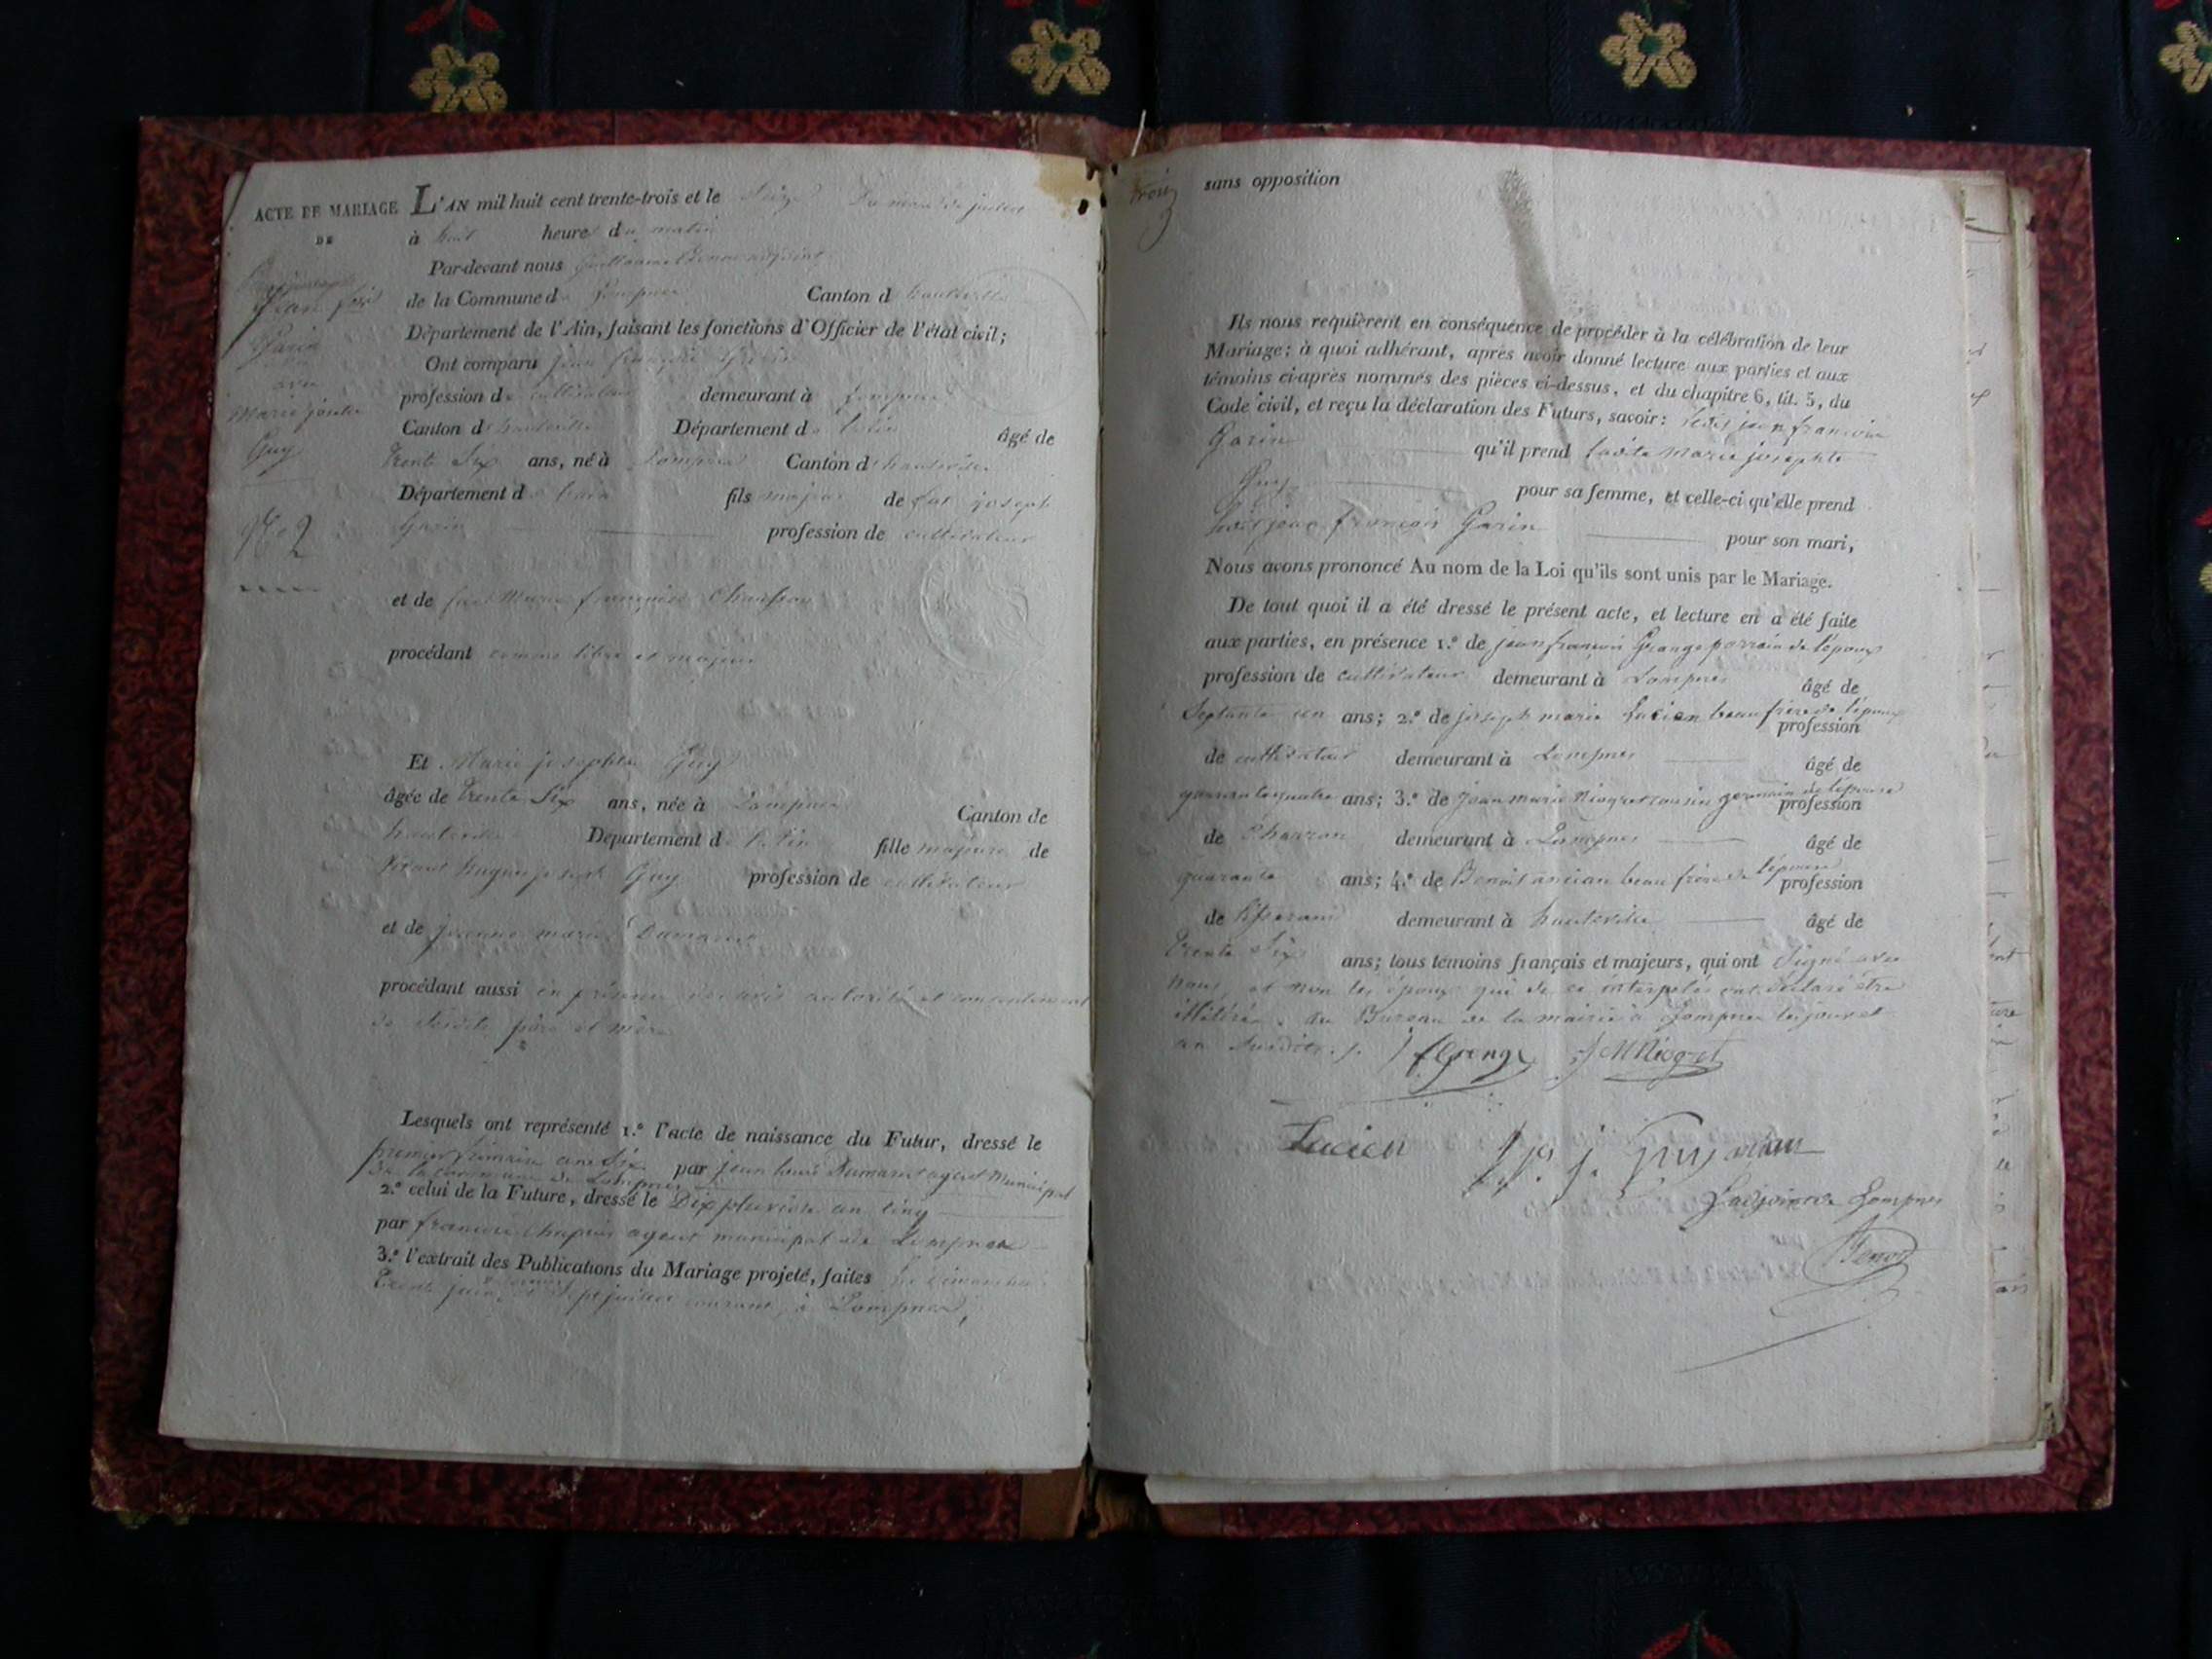 ACTE DE MARIAGE
DE
Jean fois
Garin
avec
Marie josephte
Guy
No 2
L'AN mil huit cent trente-trois et le Seize du mois de juillet
à huit heures du matin
Par-devant nous adjoint
de la Commune de Lompnes Canton d'hauteville
Département de l'Ain, faisant les fonctions d'Officier de l'état civil;
Ont comparu jean françois Garin
profession de cultivateur demeurant à Lompnes
Canton d'hauteville Département de l'ain âgé de
trente Six ans, né à Lompnes Canton d'hauteville
Département de l'ain fils majeur de feu joseph
Garin profession de cultivateur
et de feue Marie françoise
procédant comme libre et majeur
Et Marie josephte Guy
âgée de trente Six ans, née à Lompnes Canton de
hauteville Département de l'Ain fille majeure de
vivant joseph Guy profession de cultivateur
et de jeanne marie Dumarest
procédant aussi en présence autorité et consentement
de Sesdits père et mère
Lesquels ont représenté 1.º l'acte de naissance du Futur, dressé le
premier frimaire an Six par jean louis Dumarest agent Municipal
de la commune de Lompnes
2.º celui de la Future, dressé le Dix pluviose an cinq
par françois Chapuis agent municipal de Lompnes
3.º l'extrait des Publications du Mariage projeté, faites les dimanches
trente juin et Sept juillet courant, à Lompnes,
trois
sans opposition
Ils nous requièrent en conséquence de procéder à la célébration de leur
Mariage; à quoi adhérant, après avoir donné lecture aux parties et aux
témoins ci-après nommés des pièces ci-dessus, et du chapitre 6, tit. 5, du
Code civil, et reçu la déclaration des Futurs, savoir: ledit jean françois
Garin qu'il prend ladite Marie josephte
Guy pour sa femme, et celle-ci qu'elle prend
ledit jean françois Garin pour son mari,
Nous avons prononcé Au nom de la Loi qu'ils sont unis par le Mariage.
De tout quoi il a été dressé le présent acte, et lecture en a été faite
aux parties, en présence 1.º de jean françois Grange parrain de l'époux
profession de cultivateur demeurant à Lompnes âgé de
Septante un ans; 2.º de joseph marie Lucien beau frère de l'époux
profession
de cultivateur demeurant à Lompnes âgé de
quarante quatre ans; 3.º de jean marie Niogret cousin germain de l'épouse
profession
de Charron demeurant à Lompnes âgé de
quarante ans; 4.º de Benoit ancian beau frère de l'épouse
profession
de demeurant à hauteville âgé de
trente Six ans; tous témoins français et majeurs, qui ont Signé avec
nous et non les époux qui de ce interpelés ont déclaré être
illitérés. Au Bureau de la mairie à Lompnes les jour et
an Susdits.
J f Grange J M Niogret
Lucien
L'adjoint de Lompnes